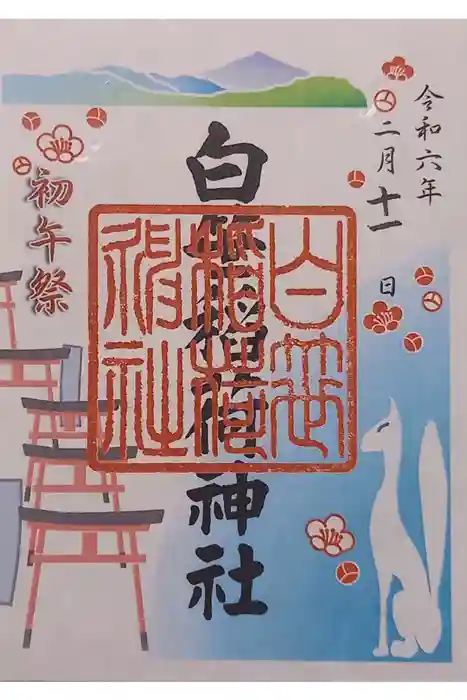 令和六年
二月十一日
白笹稲荷神社
初午祭
白笹
稲荷
神社